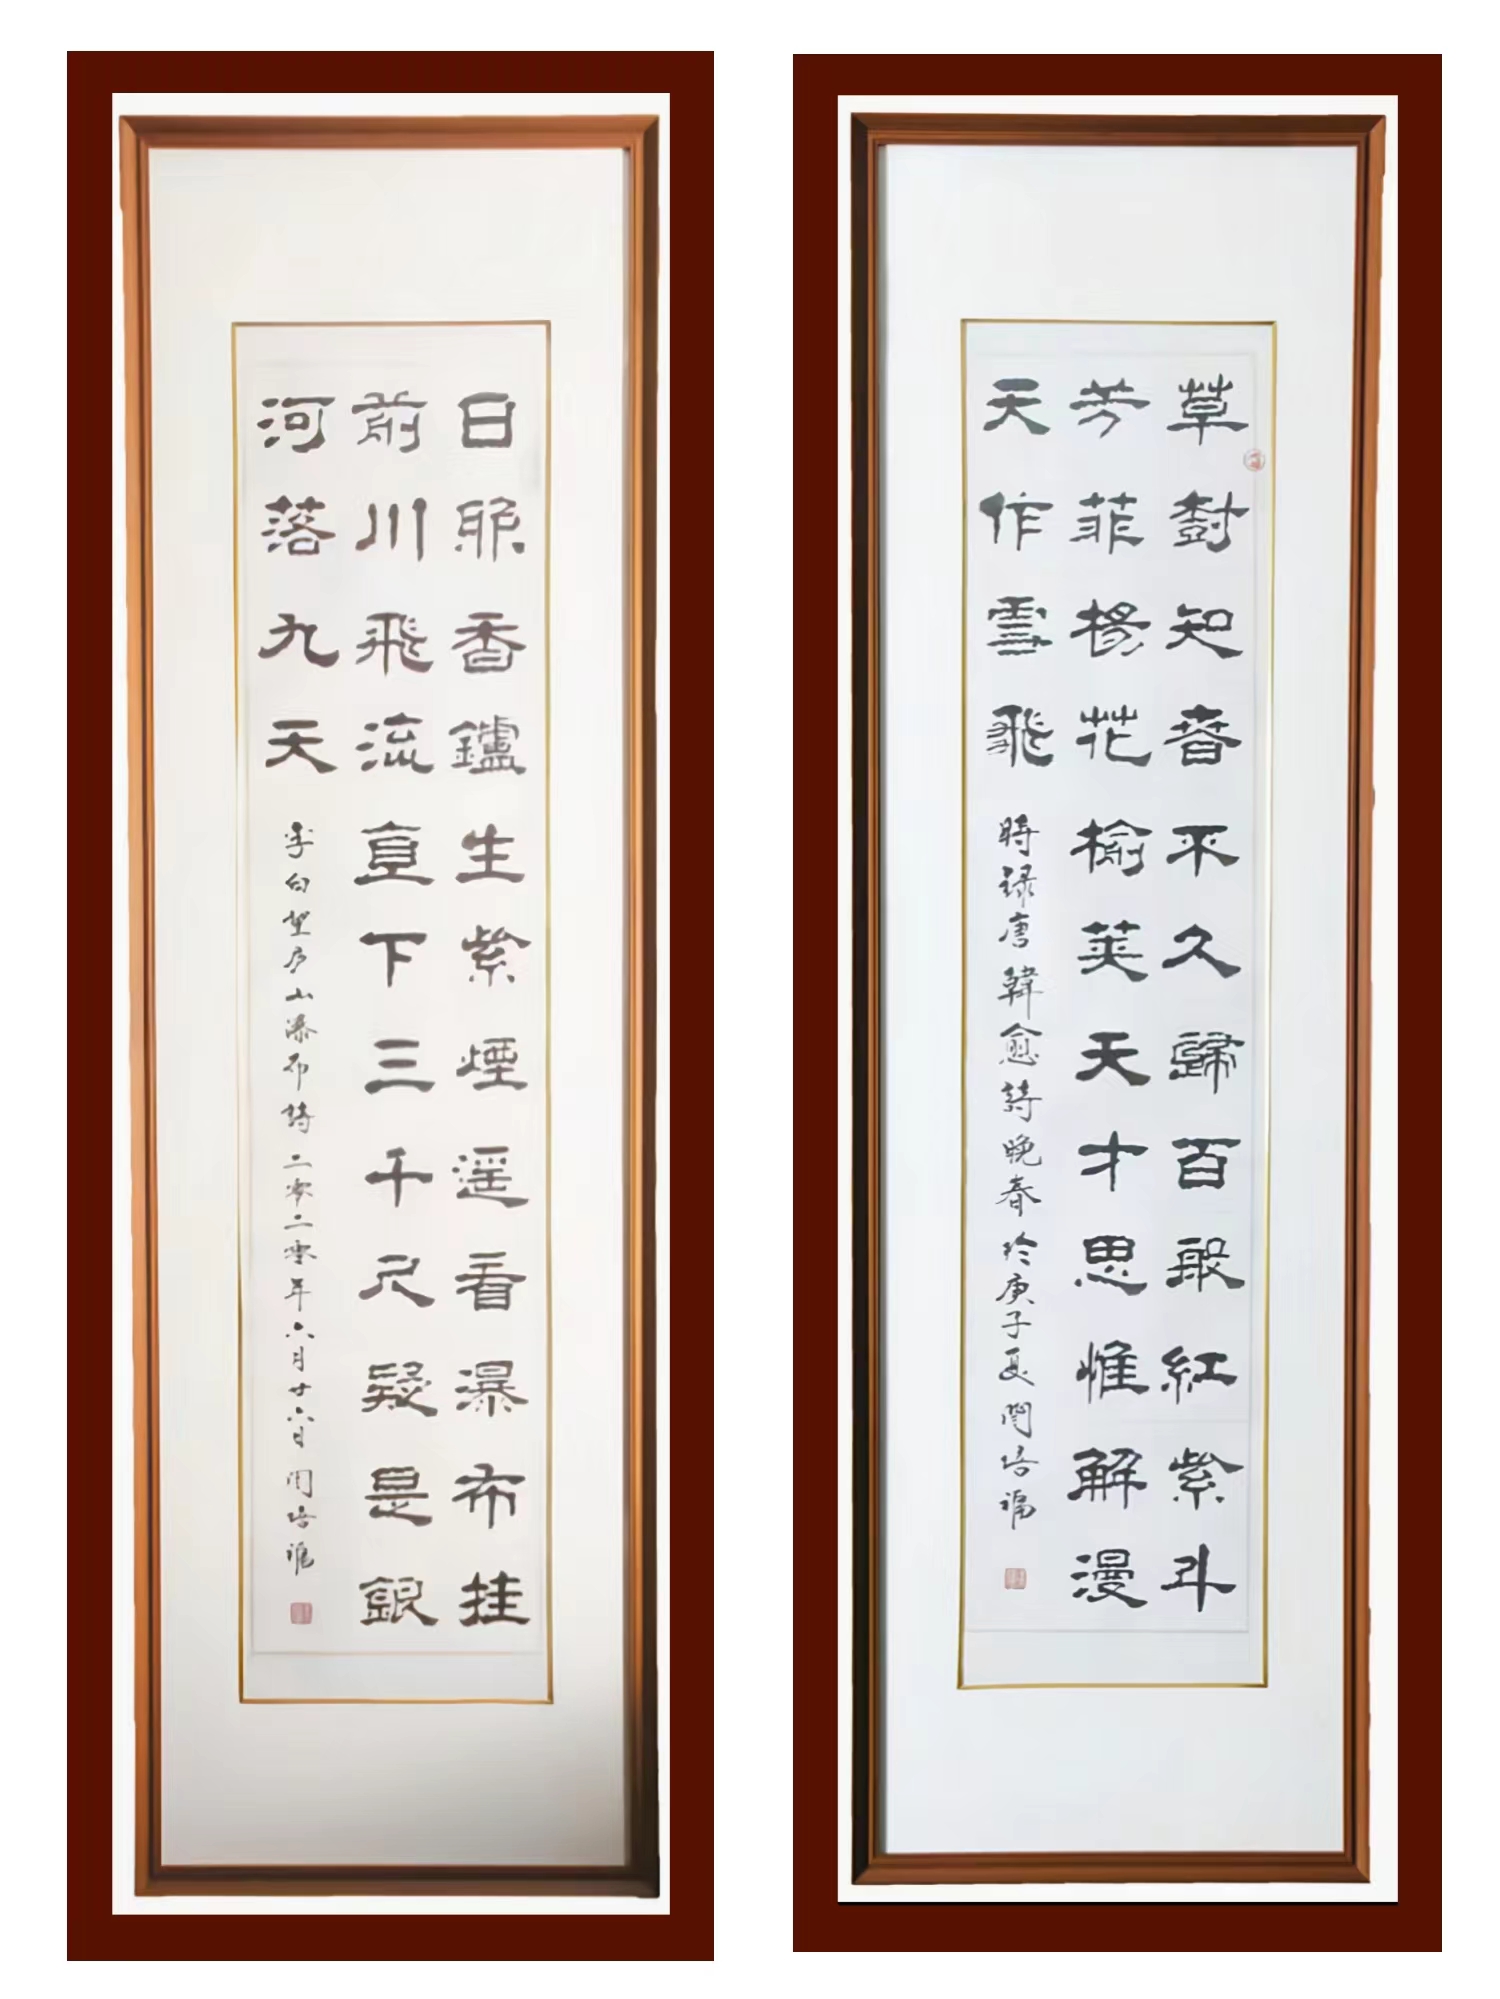 日照香鑪生紫煙遥看瀑布挂
前川飛流直下三千尺疑是銀
河落九天
李白望庐山瀑布詩二零二零年六月廿六日閆培福
草樹知春不久歸百般紅紫斗
芳菲楊花榆莢无才思惟解漫
天作雪飛
時録唐韓愈詩晚春於庚子夏閆培福